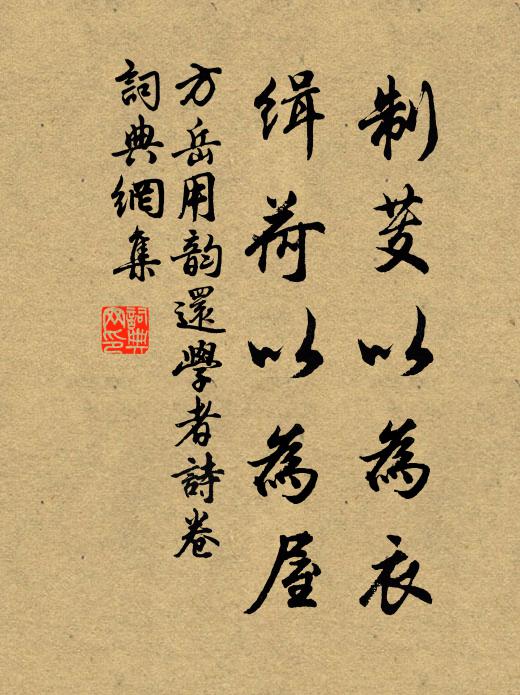 制芰以為衣
緝荷以為屋
方岳用韵還學者詩卷
詞典網集
詞典网印